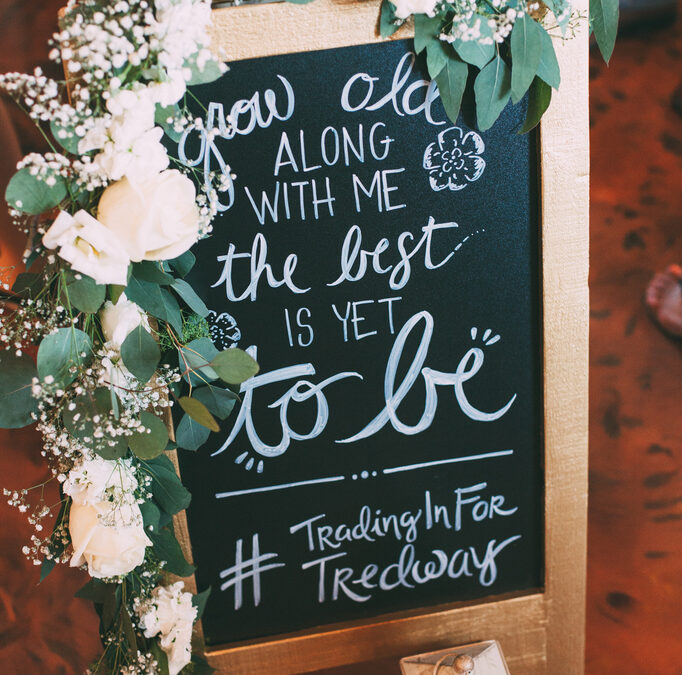 grow old
ALONG
WITH ME
the best
IS YET
to be
# TradingInFor
Tredway